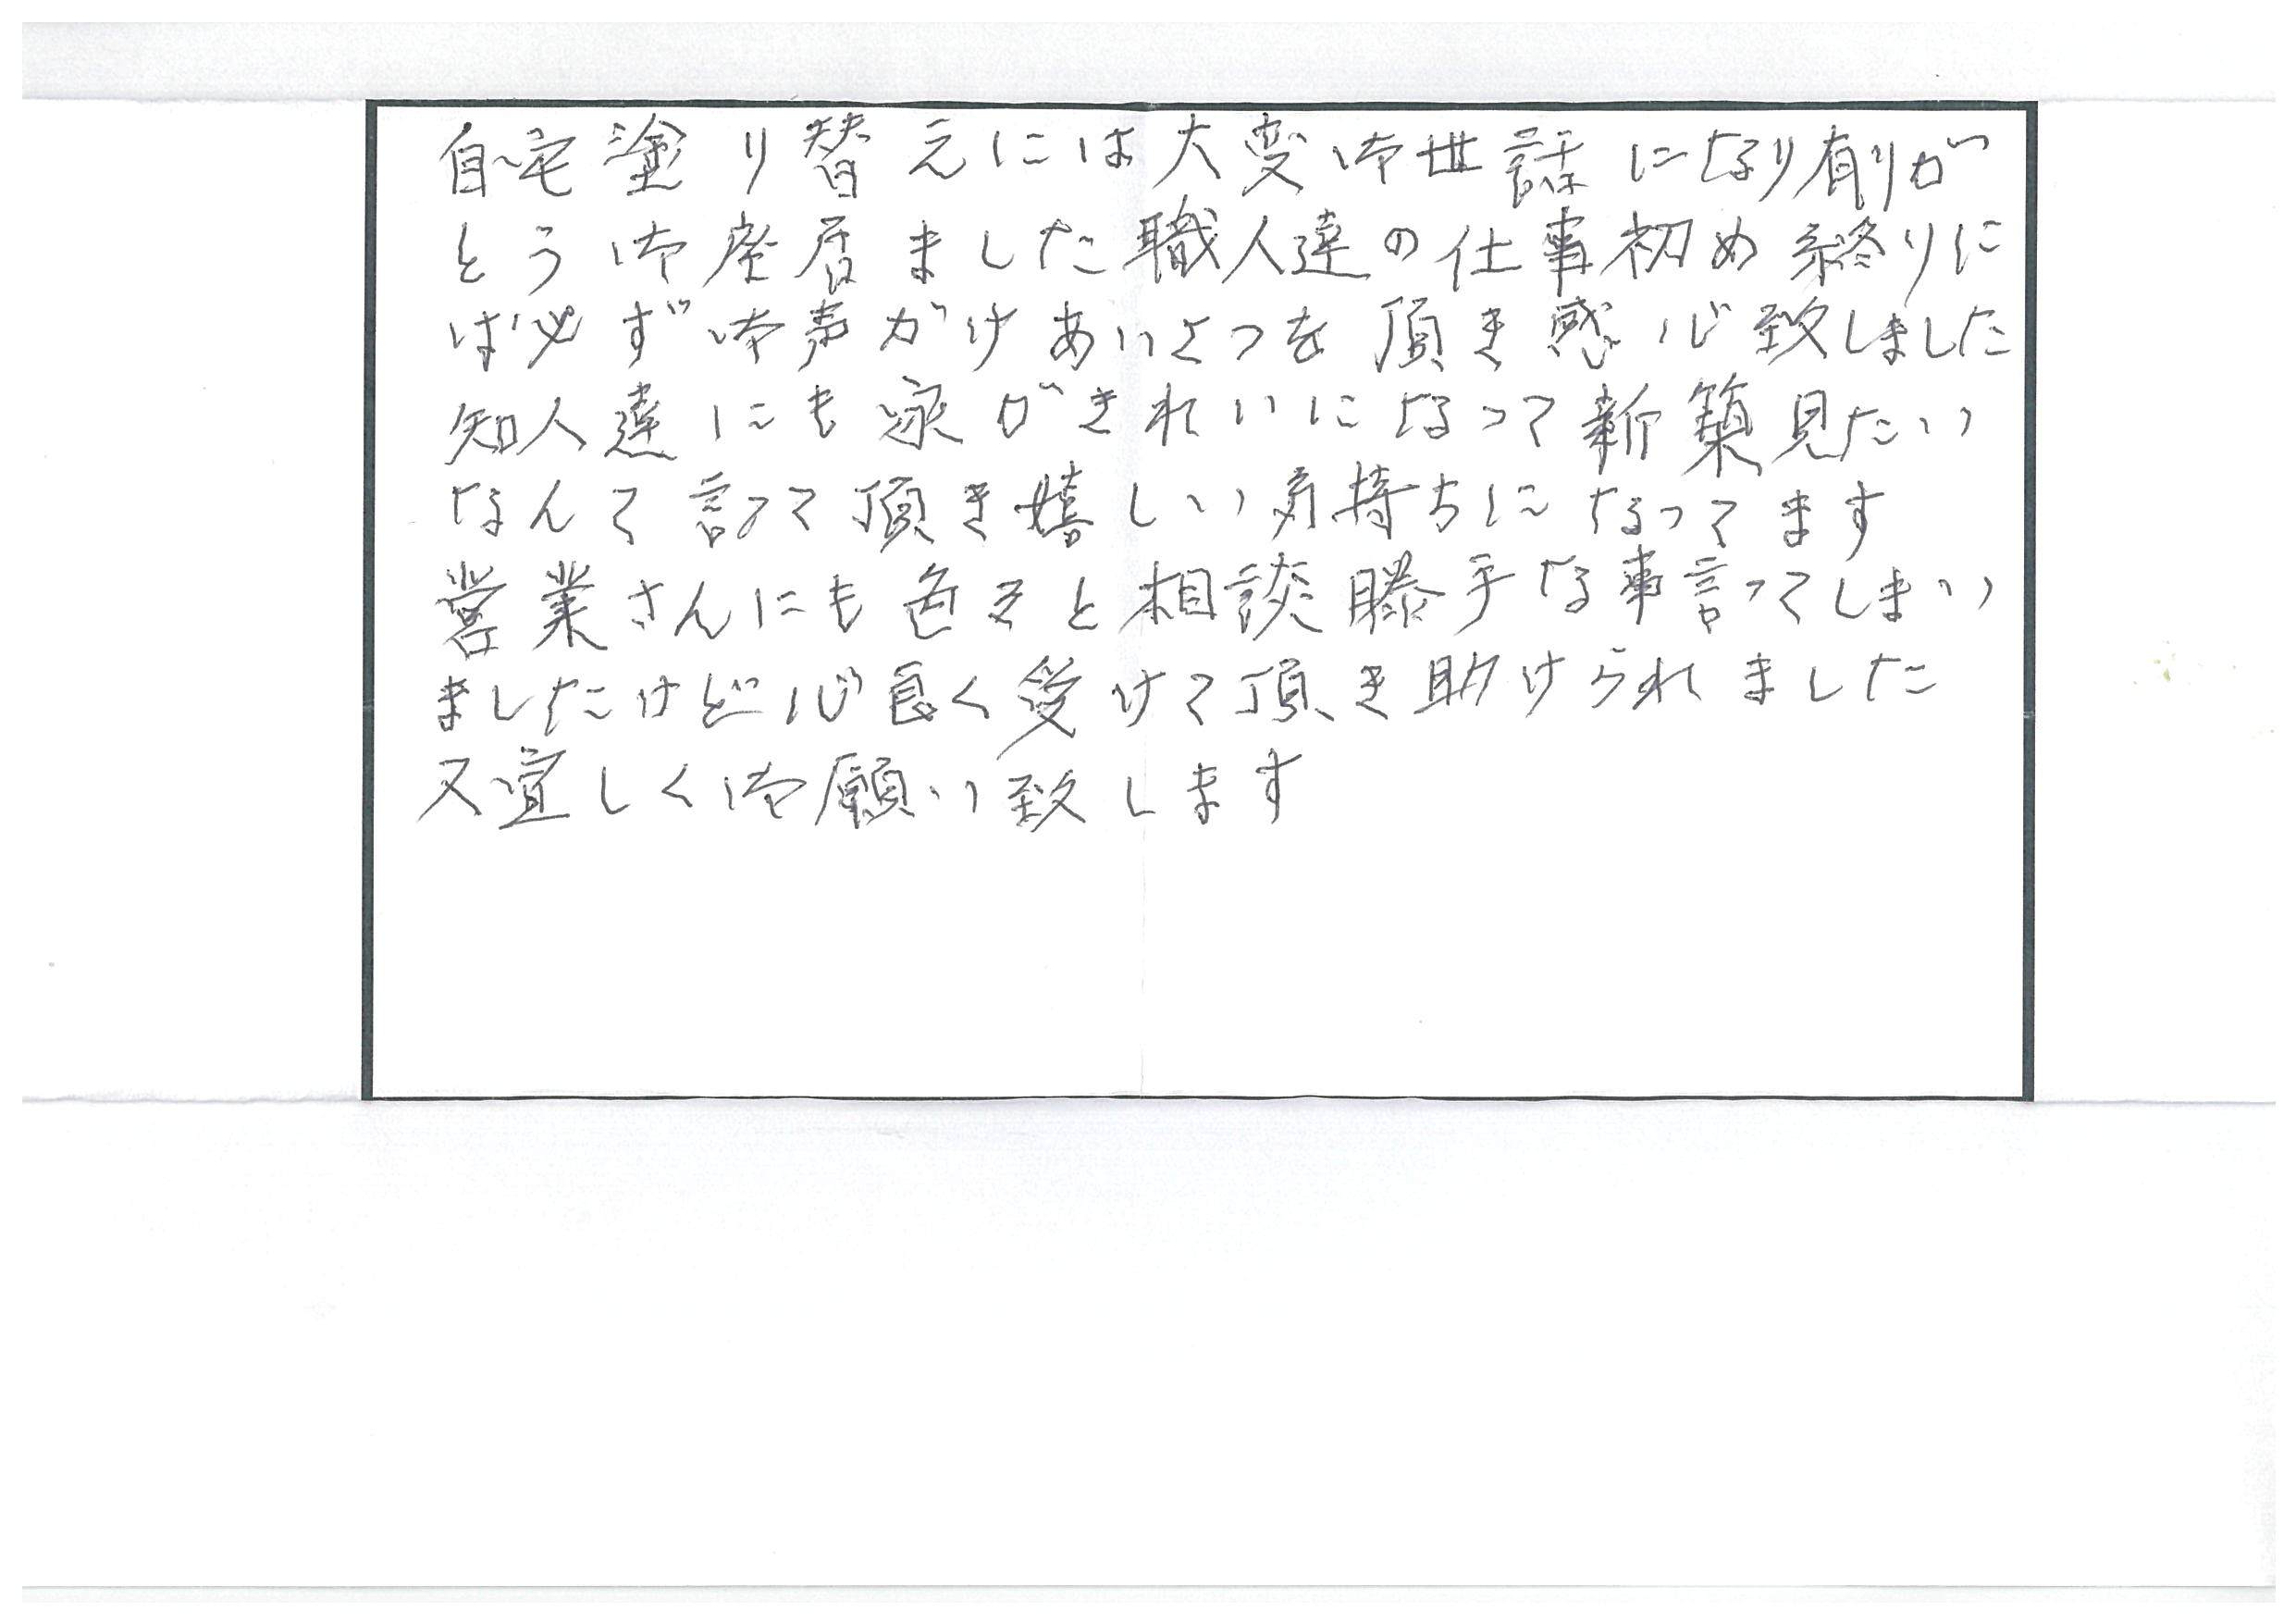 自宅塗り替えには大変御世話になり有りが
とう御座居ました職人達の仕事初め終りに
は必ず御声がけあいさつを頂き感心致しました
知人達にも家がきれいになって新築見たい
なんて言って頂き嬉しい気持ちになってます
営業さんにも色々と相談勝手な事言ってしまい
ましたけど心良く受けて頂き助けられました
又宜しく御願い致します